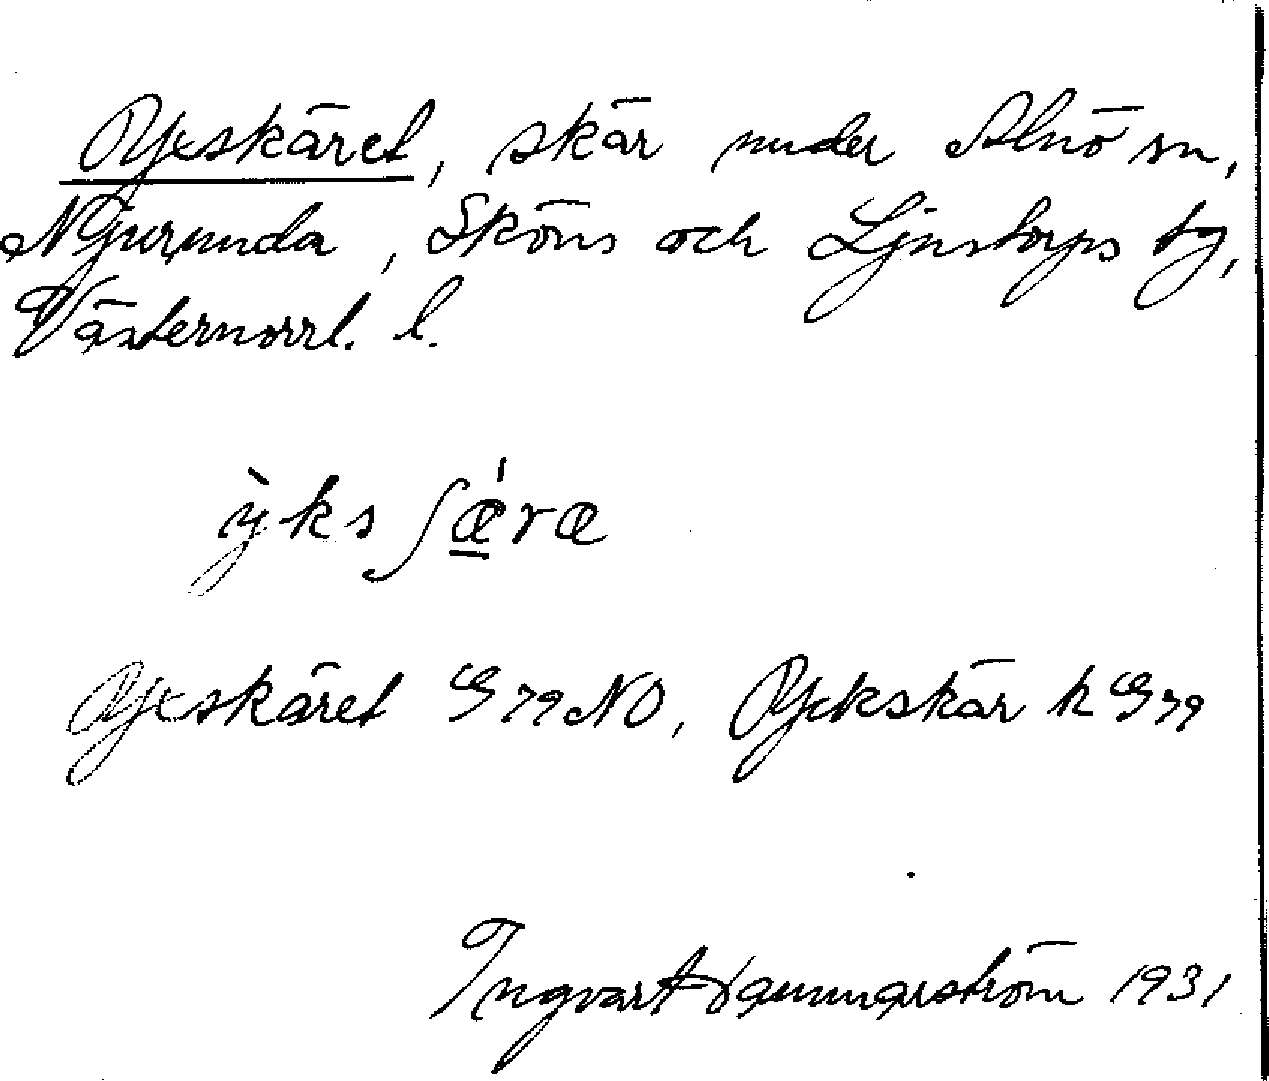 Yxskäret, skär under Alnö sn,
Njurunda, Sköns och Ljustorps tg,
Västernorrl. l.
ỳksʃǽ̠ræ
Yxskäret G79NO, Yckskär h G79
Ingvart Hammarström 1931